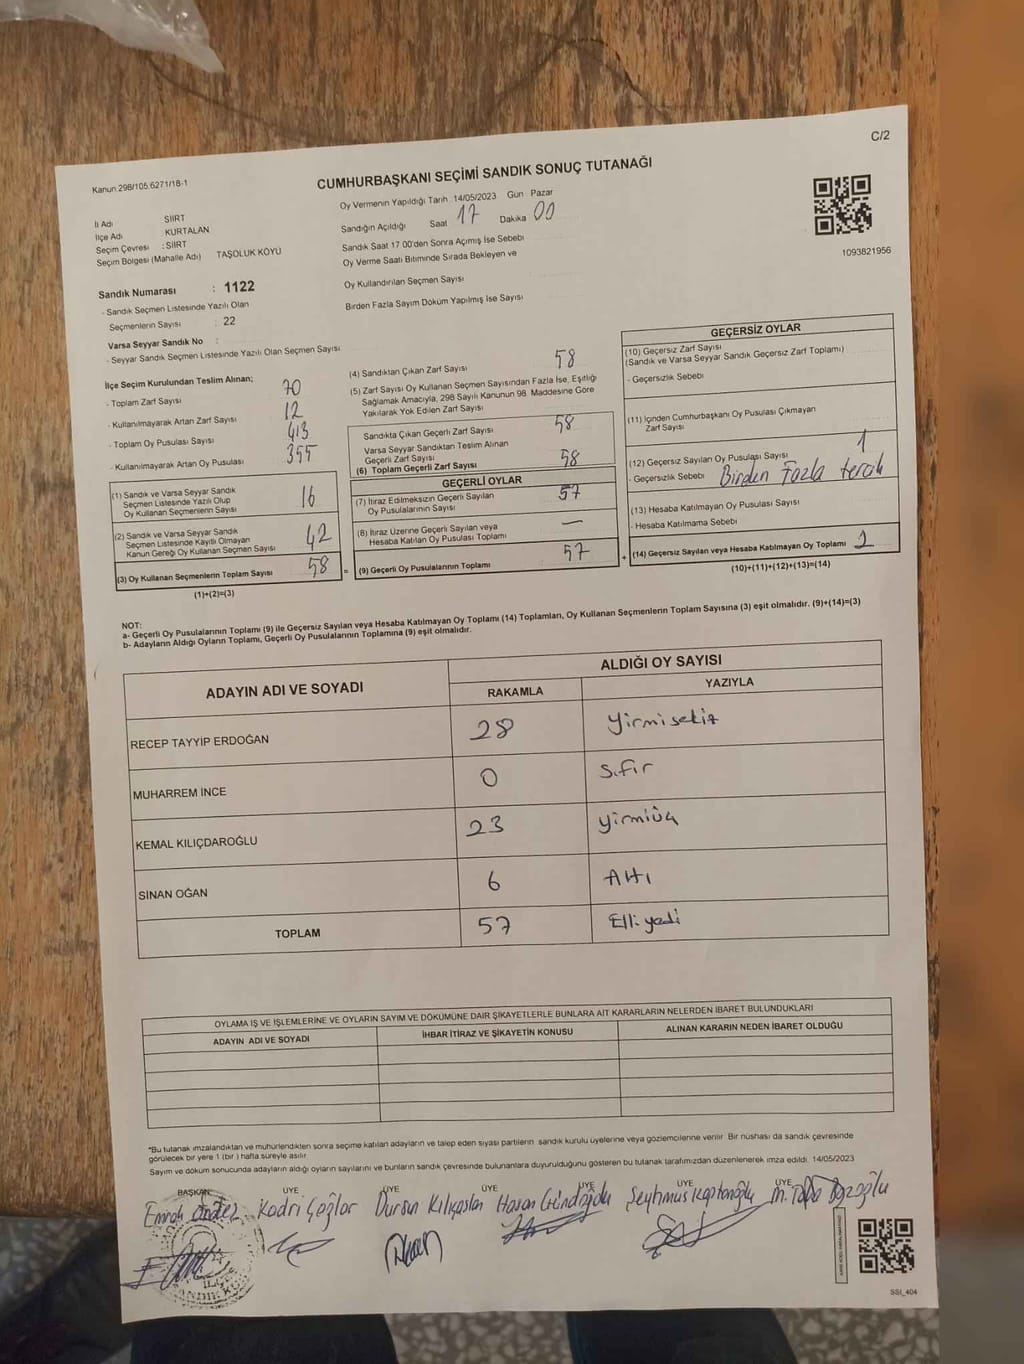 C/2
Kanun.298/105.6271/18-1
CUMHURBAŞKANI SEÇİMİ SANDIK SONUÇ TUTANAĞI
İl Adı SİİRT
İlçe Adı KURTALAN
Seçim Çevresi : SİİRT
Seçim Bölgesi (Mahalle Adı) TAŞOLUK KÖYÜ
Oy Vermenin Yapıldığı Tarih 14/05/2023 Gün Pazar
Sandığın Açıldığı Saat 17 Dakika 00
Sandık Saat 17 00'den Sonra Açımış İse Sebebi
Oy Verme Saati Bitiminde Sırada Bekleyen ve
Oy Kullandırılan Seçmen Sayısı
Birden Fazla Sayım Döküm Yapılmış İse Sayısı
1093821956
Sandık Numarası : 1122
- Sandık Seçmen Listesinde Yazılı Olan
Seçmenlerin Sayısı : 22
Varsa Seyyar Sandık No :
- Seyyar Sandık Seçmen Listesinde Yazılı Olan Seçmen Sayısı
İlçe Seçim Kurulundan Teslim Alınan;
- Toplam Zarf Sayısı 70
- Kullanılmayarak Artan Zarf Sayısı 12
- Toplam Oy Pusulası Sayısı 413
- Kullanılmayarak Artan Oy Pusulası 355
(1) Sandık ve Varsa Seyyar Sandık
Seçmen Listesinde Yazılı Olup
Oy Kullanan Seçmenlerin Sayısı 16
(2) Sandık ve Varsa Seyyar Sandık
Seçmen Listesinde Kayıtlı Olmayan
Kanun Gereği Oy Kullanan Seçmen Sayısı 42
(3) Oy Kullanan Seçmenlerin Toplam Sayısı 58 =
(1)+(2)=(3)
(4) Sandıktan Çıkan Zarf Sayısı 58
(5) Zarf Sayısı Oy Kullanan Seçmen Sayısından Fazla İse, Eşitliği
Sağlamak Amacıyla, 298 Sayılı Kanunun 98. Maddesine Göre
Yakılarak Yok Edilen Zarf Sayısı
Sandıkta Çıkan Geçerli Zarf Sayısı 58
Varsa Seyyar Sandıktan Teslim Alınan
Geçerli Zarf Sayısı
(6) Toplam Geçerli Zarf Sayısı 58
GEÇERLİ OYLAR
(7) İtiraz Edilmeksizin Geçerli Sayılan
Oy Pusulalarının Sayısı 57
(8) İtiraz Üzerine Geçerli Sayılan veya
Hesaba Katılan Oy Pusulası Toplamı —
(9) Geçerli Oy Pusulalarının Toplamı 57 +
GEÇERSİZ OYLAR
(10) Geçersiz Zarf Sayısı
(Sandık ve Varsa Seyyar Sandık Geçersiz Zarf Toplamı)
- Geçersizlik Sebebi
(11) İçinden Cumhurbaşkanı Oy Pusulası Çıkmayan
Zarf Sayısı
(12) Geçersiz Sayılan Oy Pusulası Sayısı 1
- Geçersizlik Sebebi Birden Fazla tercih
(13) Hesaba Katılmayan Oy Pusulası Sayısı
- Hesaba Katılmama Sebebi
(14) Geçersiz Sayılan veya Hesaba Katılmayan Oy Toplamı 1
(10)+(11)+(12)+(13)=(14)
NOT:
a- Geçerli Oy Pusulalarının Toplamı (9) ile Geçersiz Sayılan veya Hesaba Katılmayan Oy Toplamı (14) Toplamları, Oy Kullanan Seçmenlerin Toplam Sayısına (3) eşit olmalıdır. (9)+(14)=(3)
b- Adayların Aldığı Oyların Toplamı, Geçerli Oy Pusulalarının Toplamına (9) eşit olmalıdır.
ADAYIN ADI VE SOYADI ALDIĞI OY SAYISI
RAKAMLA YAZIYLA
RECEP TAYYİP ERDOĞAN 28 Yirmisekiz
MUHARREM İNCE 0 Sıfır
KEMAL KILIÇDAROĞLU 23 Yirmiüç
SİNAN OĞAN 6 Altı
TOPLAM 57 Elli yedi
OYLAMA İŞ VE İŞLEMLERİNE VE OYLARIN SAYIM VE DÖKÜMÜNE DAİR ŞİKAYETLERLE BUNLARA AİT KARARLARIN NELERDEN İBARET BULUNDUKLARI
ADAYIN ADI VE SOYADI İHBAR İTİRAZ VE ŞİKAYETİN KONUSU ALINAN KARARIN NEDEN İBARET OLDUĞU
*Bu tutanak imzalandıktan ve mühürlendikten sonra seçime katılan adayların ve talep eden siyasi partilerin sandık kurulu üyelerine veya gözlemcilerine verilir. Bir nüshası da sandık çevresinde
görülecek bir yere 1 (bir) hafta süreyle asılır.
Sayım ve döküm sonucunda adayların aldığı oyların sayılarını ve bunların sandık çevresinde bulunanlara duyurulduğunu gösteren bu tutanak tarafımızdan düzenlenerek imza edildi. 14/05/2023
BAŞKAN ÜYE ÜYE ÜYE ÜYE ÜYE
Emrah Önder Kadri Çağlar Dursun Kılıçaslan Hasan Gündoğdu Şeyhmus Kaptanoğlu M. Bozoğlu
SSI_404